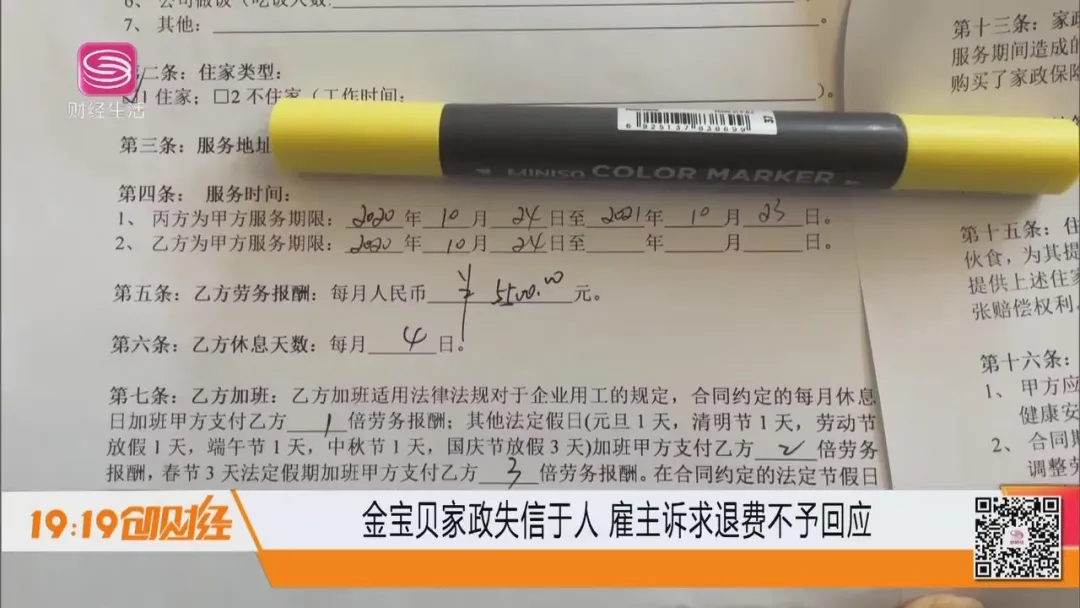 7、其他：
。
第二条：住家类型：
☑1 住家；□2 不住家（工作时间：
）。
第三条：服务地址
第四条： 服务时间：
1、 丙方为甲方服务期限： 2020 年 10 月 24 日至 2021 年 10 月 23 日。
2、 乙方为甲方服务期限： 2020 年 10 月 24 日至 年 月 日。
第五条：乙方劳务报酬：每月人民币 ¥ 5500.00 元。
第六条：乙方休息天数：每月 4 日。
第七条：乙方加班：乙方加班适用法律法规对于企业用工的规定，合同约定的每月休息
日加班甲方支付乙方 1 倍劳务报酬；其他法定假日(元旦 1 天，清明节 1 天，劳动节
放假 1 天，端午节 1 天，中秋节 1 天，国庆节放假 3 天)加班甲方支付乙方 2 倍劳务
报酬，春节 3 天法定假期加班甲方支付乙方 3 倍劳务报酬。在合同约定的法定节假日
第十三条：家政
服务期间造成的
购买了家政保险
第十五条：住
伙食，为其提
提供上述住家
张赔偿权利
第十六条：
1、 甲方应
健康安
2、 合同期
调整劳
6 925137 838699
MINISO COLOR MARKER
财经生活
19:19创财经
金宝贝家政失信于人 雇主诉求退费不予回应